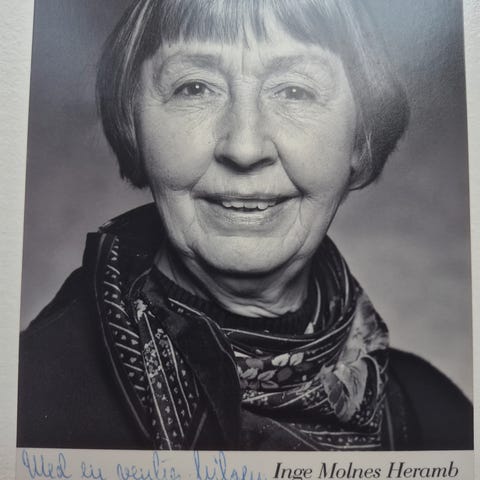 Med en vennlig hilsen Inge Molnes Heramb